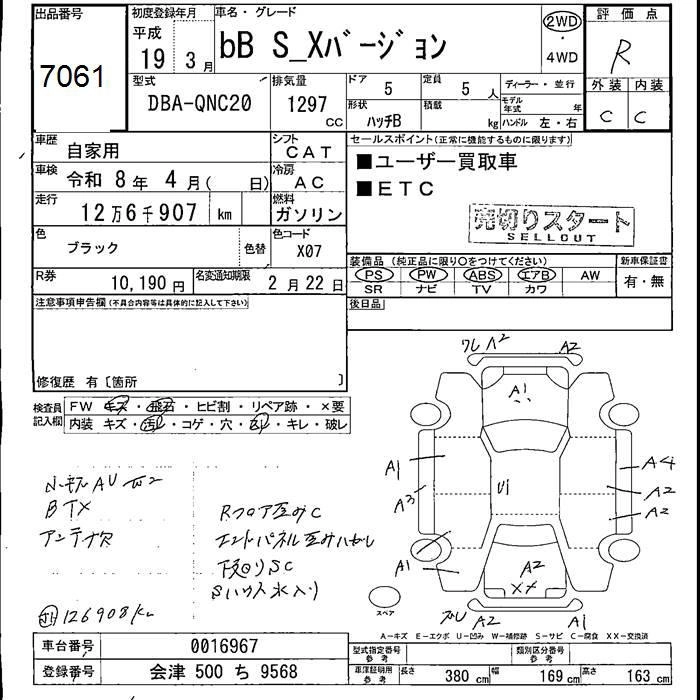 出品番号
7061
初度登録年月
平成
19 年 3 月
車名・グレード
bB S_Xバージョン
2WD
・
4WD
評価点
R
外装 内装
C C
型式
DBA-QNC20
排気量
1297 CC
ドア
5
定員
5 人
形状
ハッチB
積載
kg
ディーラー・並行
モデル年式 年
ハンドル 左・右
車歴
自家用
シフト
CAT
車検
令和 8 年 4 月 ( 日)
冷房
AC
走行
12万6千907 km
燃料
ガソリン
色
ブラック
色替
色コード
X07
R券
10,190 円
名変通知期限
2 月 22 日
セールスポイント(正常に機能するものに限ります)
■ユーザー買取車
■ETC
売切りスタート
SELLOUT
装備品 (純正品に限り○をつけてください)
PS PW ABS エアB AW
SR ナビ TV カワ
新車保証書
有・無
後日品
注意事項申告欄(不具合内容等は具体的に記入して下さい)
修復歴 有〔箇所 〕
検査員記入欄
FW キズ・飛石・ヒビ割・リペア跡・×要
内装 キズ・汚れ・コゲ・穴・凹・キレ・破レ
BTX
アンテナ欠
Rフロア歪みC
エンドパネル歪みハガレ
下廻りSC
126908km
ワレ A2
A2
A1
A1
A3
A1
U1
A4
A2
A2
A2
XX
A2
A1
スペア
A-キズ E-エクボ U-凹み W-補修跡 S-サビ C-腐食 XX-交換済
車台番号
0016967
登録番号
会津 500 ち 9568
型式指定番号
参考
類別区分番号
参考
車庫証明用
参考
長さ 380 cm
幅 169 cm
高さ 163 cm